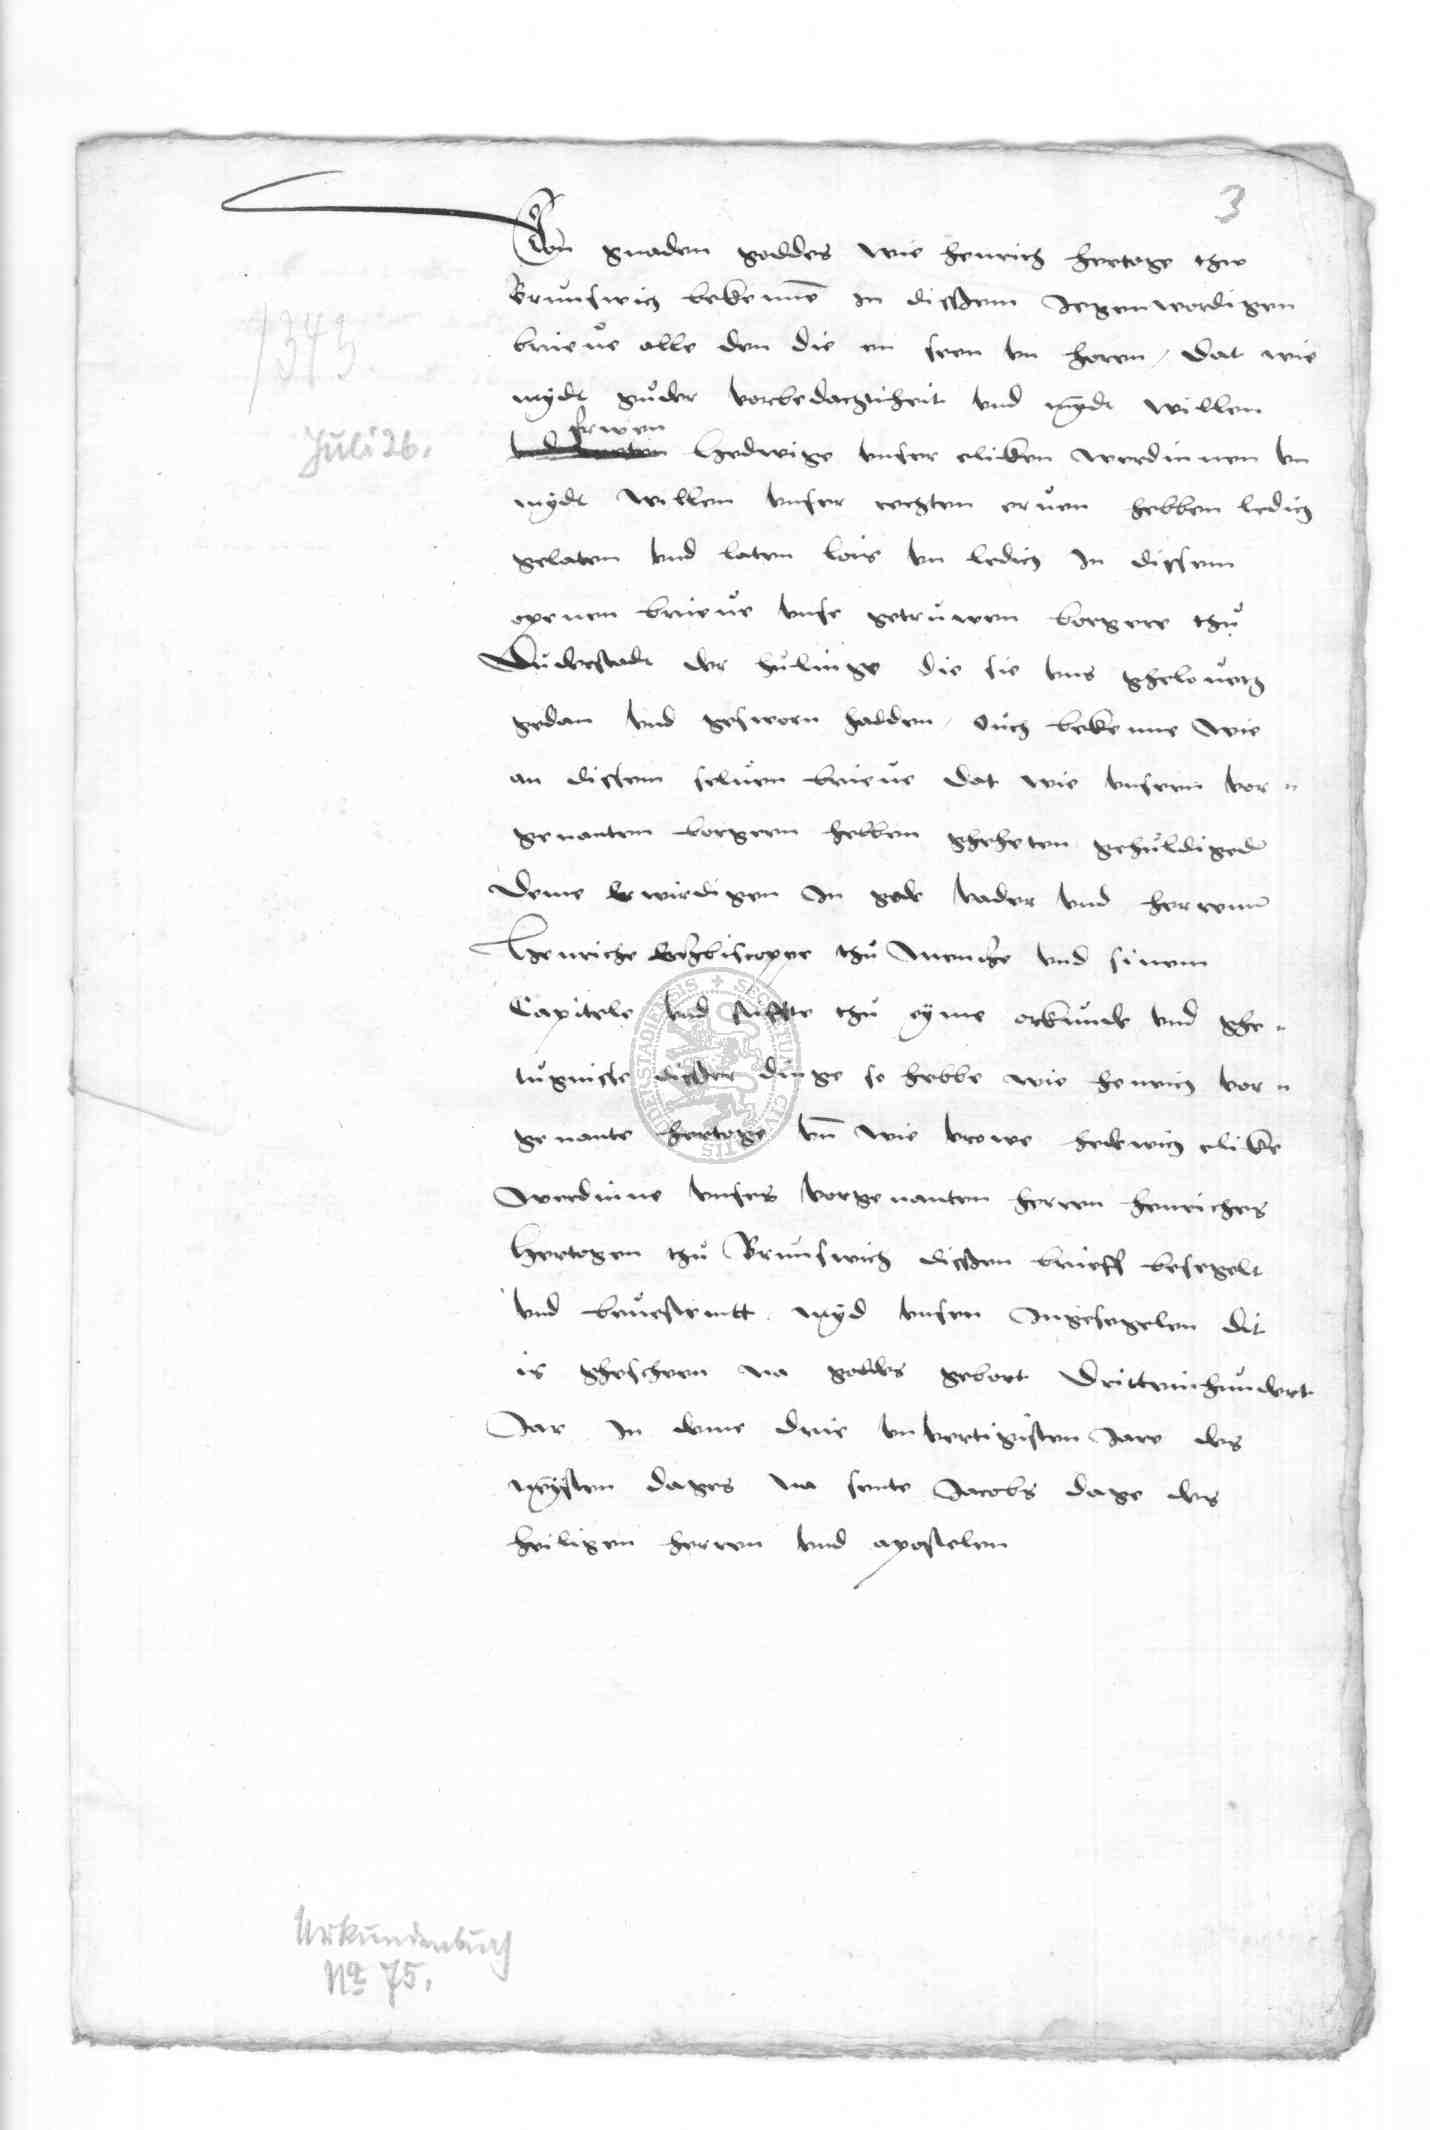 3
Von gnaden goddes wie henrich hertoge thw
Brunswich bekennē in dissem Jegenwordigen
brieue alle den die en seen vn horen / dat wie
mydt guder vorbedachticheit vnd mydt willen
frwen
Hedwige vnser eliken werdinnen vn
mydt willen vnser rechten eruen hebben ledich
gelaten vnd laten lois vn ledich In dissem
openen brieue vnse getruwen borgere thu
Duderstadt der hulinge die sie vns ghelouetz
gedan vnd gesworn hadden / Ouch bekenne wie
an dissem seluen brieue dat wie vnsern vor〃
genanten borgern hebben gheheten gehuldiged
Deme Erwirdigen In gode vader vnd herren
Henriche Ertzbiscoppe thu Mentze vnd sinem
Capitele vnd stiffte thu eyme orkunde vnd ghe〃
tugnisse disser dinge so hebbe wie henrich vor〃
genante hertoge vn̄ wie vrowe hedewich elike
werdinne vnses vorgenanten herren henriches
Hertogen thu Brunswich dissen brieff besegelt
vnd beuestentt myd vnsen Ingesegelen dit
is ghescheen na goddes gebort Dritteinhundert
Jar In deme drie vn vertigisten Jare des
neysten dages na sente Jacobs dage des
heiligen herren vnd apostelen
1343
Juli 26.
Urkundenbuch
No 75.
SECRETUM CIVITATIS DUDERSTADIENSIS